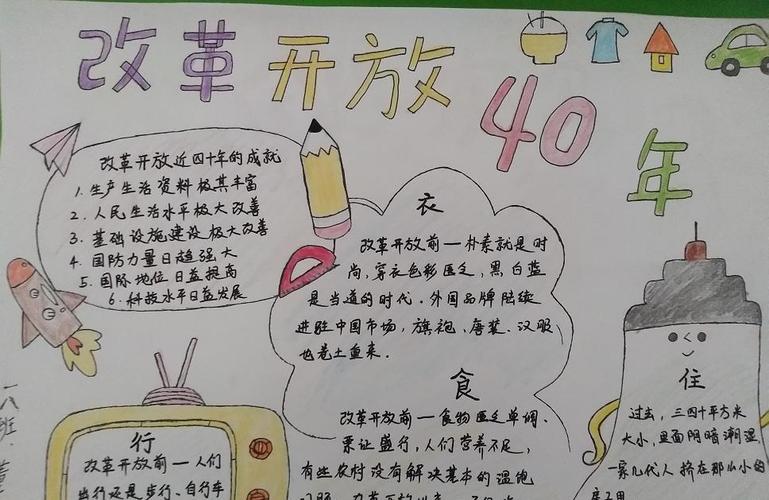 改革开放40年
改革开放近四十年的成就
1. 生产生活资料极其丰富
2. 人民生活水平极大改善
3. 基础设施建设极大改善
4. 国防力量日趋强大
5. 国际地位日益提高
6. 科技水平日益发展
衣
改革开放前一朴素就是时
尚，穿衣色彩匮乏，黑白蓝
是当道的时代。外国品牌陆续
进驻中国市场，旗袍、唐装、汉服
也卷土重来。
食
改革开放前一食物匮乏单调。
票证盛行，人们营养不足，
有些农村没有解决基本的温饱
行
改革开放前一人们
步行、自行车
住
过去，三四十平方米
大小，里面阴暗潮湿，
一家几代人挤在那小小的
一八班